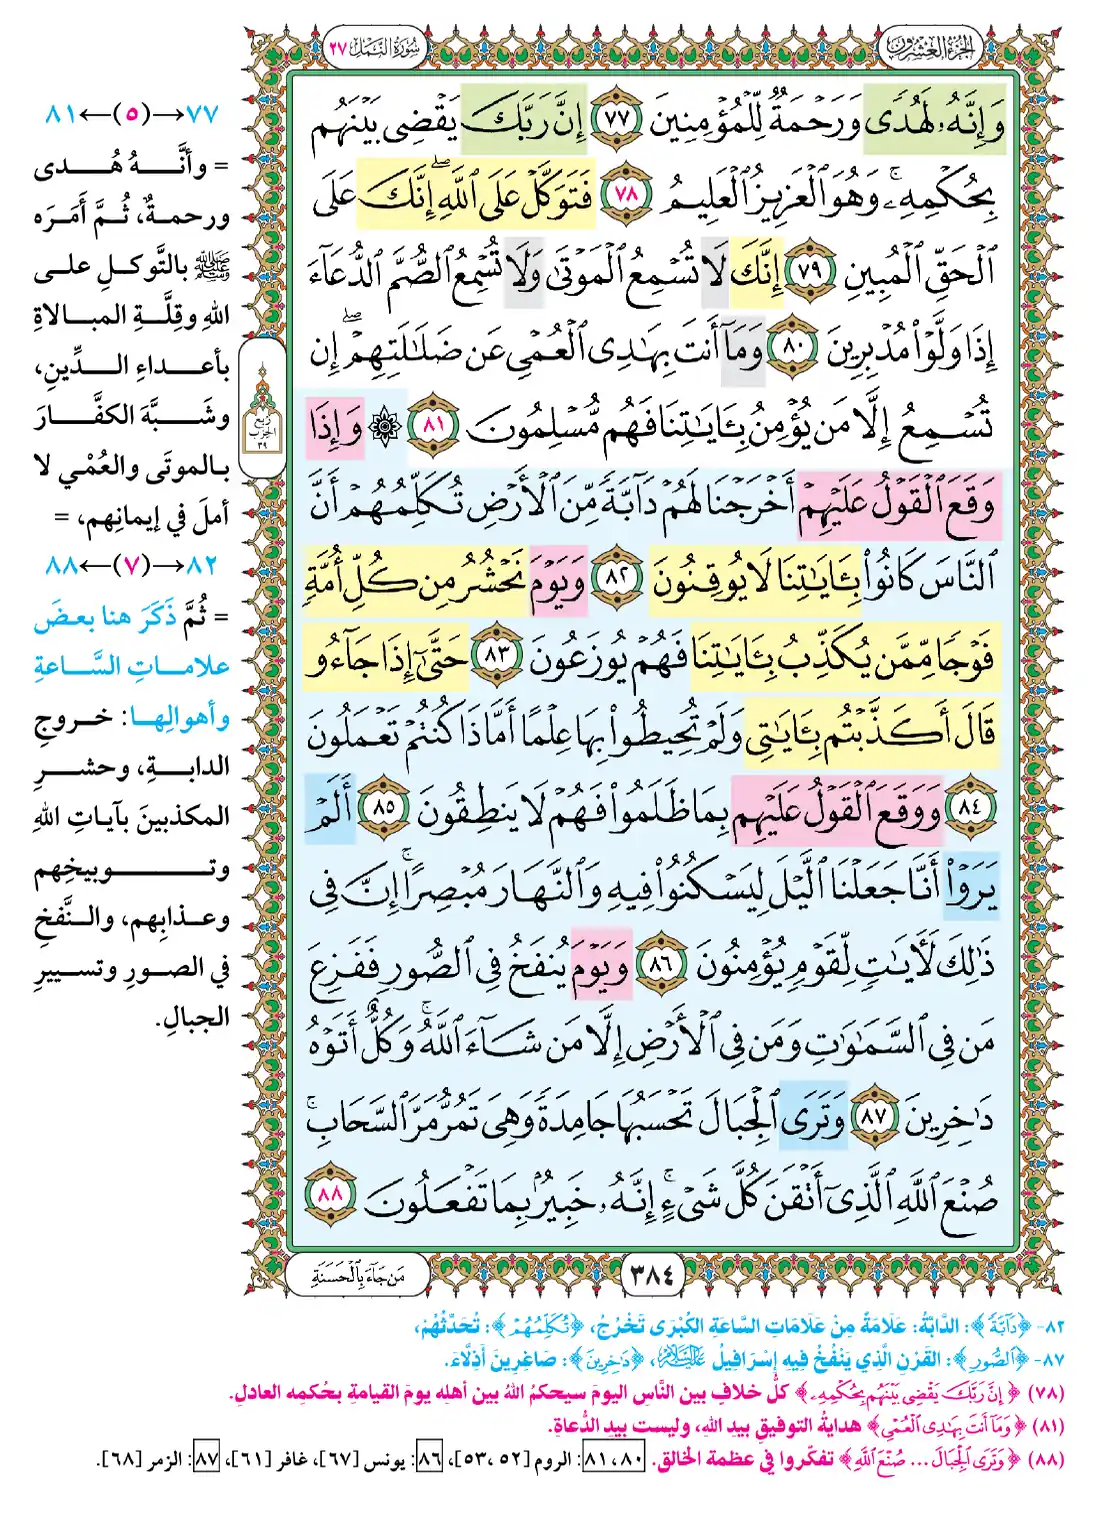 الجزء العشرون
سورة النمل ٢٧
وَإِنَّهُۥ لَهُدًى وَرَحْمَةٌ لِّلْمُؤْمِنِينَ ٧٧ إِنَّ رَبَّكَ يَقْضِى بَيْنَهُم
بِحُكْمِهِۦ ۚ وَهُوَ ٱلْعَزِيزُ ٱلْعَلِيمُ ٧٨ فَتَوَكَّلْ عَلَى ٱللَّهِ ۖ إِنَّكَ عَلَى
ٱلْحَقِّ ٱلْمُبِينِ ٧٩ إِنَّكَ لَا تُسْمِعُ ٱلْمَوْتَىٰ وَلَا تُسْمِعُ ٱلصُّمَّ ٱلدُّعَآءَ
إِذَا وَلَّوْا۟ مُدْبِرِينَ ٨٠ وَمَآ أَنتَ بِهَٰدِى ٱلْعُمْىِ عَن ضَلَٰلَتِهِمْ ۖ إِن
تُسْمِعُ إِلَّا مَن يُؤْمِنُ بِـَٔايَٰتِنَا فَهُم مُّسْلِمُونَ ٨١ ۞ وَإِذَا
وَقَعَ ٱلْقَوْلُ عَلَيْهِمْ أَخْرَجْنَا لَهُمْ دَآبَّةً مِّنَ ٱلْأَرْضِ تُكَلِّمُهُمْ أَنَّ
ٱلنَّاسَ كَانُوا۟ بِـَٔايَٰتِنَا لَا يُوقِنُونَ ٨٢ وَيَوْمَ نَحْشُرُ مِن كُلِّ أُمَّةٍ
فَوْجًا مِّمَّن يُكَذِّبُ بِـَٔايَٰتِنَا فَهُمْ يُوزَعُونَ ٨٣ حَتَّىٰٓ إِذَا جَآءُو
قَالَ أَكَذَّبْتُم بِـَٔايَٰتِى وَلَمْ تُحِيطُوا۟ بِهَا عِلْمًا أَمَّاذَا كُنتُمْ تَعْمَلُونَ
٨٤ وَوَقَعَ ٱلْقَوْلُ عَلَيْهِم بِمَا ظَلَمُوا۟ فَهُمْ لَا يَنطِقُونَ ٨٥ أَلَمْ
يَرَوْا۟ أَنَّا جَعَلْنَا ٱلَّيْلَ لِيَسْكُنُوا۟ فِيهِ وَٱلنَّهَارَ مُبْصِرًا ۚ إِنَّ فِى
ذَٰلِكَ لَـَٔايَٰتٍ لِّقَوْمٍ يُؤْمِنُونَ ٨٦ وَيَوْمَ يُنفَخُ فِى ٱلصُّورِ فَفَزِعَ
مَن فِى ٱلسَّمَٰوَٰتِ وَمَن فِى ٱلْأَرْضِ إِلَّا مَن شَآءَ ٱللَّهُ ۚ وَكُلٌّ أَتَوْهُ
دَٰخِرِينَ ٨٧ وَتَرَى ٱلْجِبَالَ تَحْسَبُهَا جَامِدَةً وَهِىَ تَمُرُّ مَرَّ ٱلسَّحَابِ ۚ
صُنْعَ ٱللَّهِ ٱلَّذِىٓ أَتْقَنَ كُلَّ شَىْءٍ ۚ إِنَّهُۥ خَبِيرٌۢ بِمَا تَفْعَلُونَ ٨٨
٣٨٤
مَن جَآءَ بِٱلْحَسَنَةِ
ربع
الحزب
٣٩
٧٧→(٥)←٨١
= وأنَّهُ هُدى
ورحمةٌ، ثُمَّ أَمَرَه
ﷺ بالتَّوكلِ على
اللهِ وقِلَّةِ المبالاةِ
بأعداءِ الدِّينِ،
وشَبَّهَ الكفَّارَ
بالموتَى والعُمْي لا
أملَ في إيمانِهم، =
٨٢→(٧)←٨٨
= ثُمَّ ذَكَرَ هنا بعضَ
علاماتِ السَّاعةِ
وأهوالِها: خروجِ
الدابةِ، وحشرِ
المكذبينَ بآياتِ اللهِ
وتوبيخِهم
وعذابِهم، والنَّفخِ
في الصورِ وتسييرِ
الجبالِ.
٨٢- ﴿دَآبَّةً﴾: الدَّابَّةُ: عَلَامَةٌ مِنْ عَلَامَاتِ السَّاعَةِ الكُبْرَى تَخْرُجُ، ﴿تُكَلِّمُهُمْ﴾: تُحَدِّثُهُمْ،
٨٧- ﴿ٱلصُّورِ﴾: القَرْنِ الَّذِي يَنْفُخُ فِيهِ إِسْرَافِيلُ عَلَيْهِ السَّلَامُ، ﴿دَٰخِرِينَ﴾: صَاغِرِينَ أَذِلَّاءَ.
(٧٨) ﴿إِنَّ رَبَّكَ يَقْضِى بَيْنَهُم بِحُكْمِهِۦ﴾ كلُّ خلافٍ بين النَّاسِ اليومَ سيحكمُ اللهُ بين أهلِه يومَ القيامةِ بحُكمِه العادلِ.
(٨١) ﴿وَمَآ أَنتَ بِهَٰدِى ٱلْعُمْىِ﴾ هدايةُ التوفيقِ بيدِ اللهِ، وليست بيدِ الدُّعاةِ.
(٨٨) ﴿وَتَرَى ٱلْجِبَالَ ... صُنْعَ ٱللَّهِ﴾ تفكّروا في عظمة الخالق. ٨٠، ٨١: الروم [٥٢، ٥٣]، ٨٦: يونس [٦٧]، غافر [٦١]، ٨٧: الزمر [٦٨].